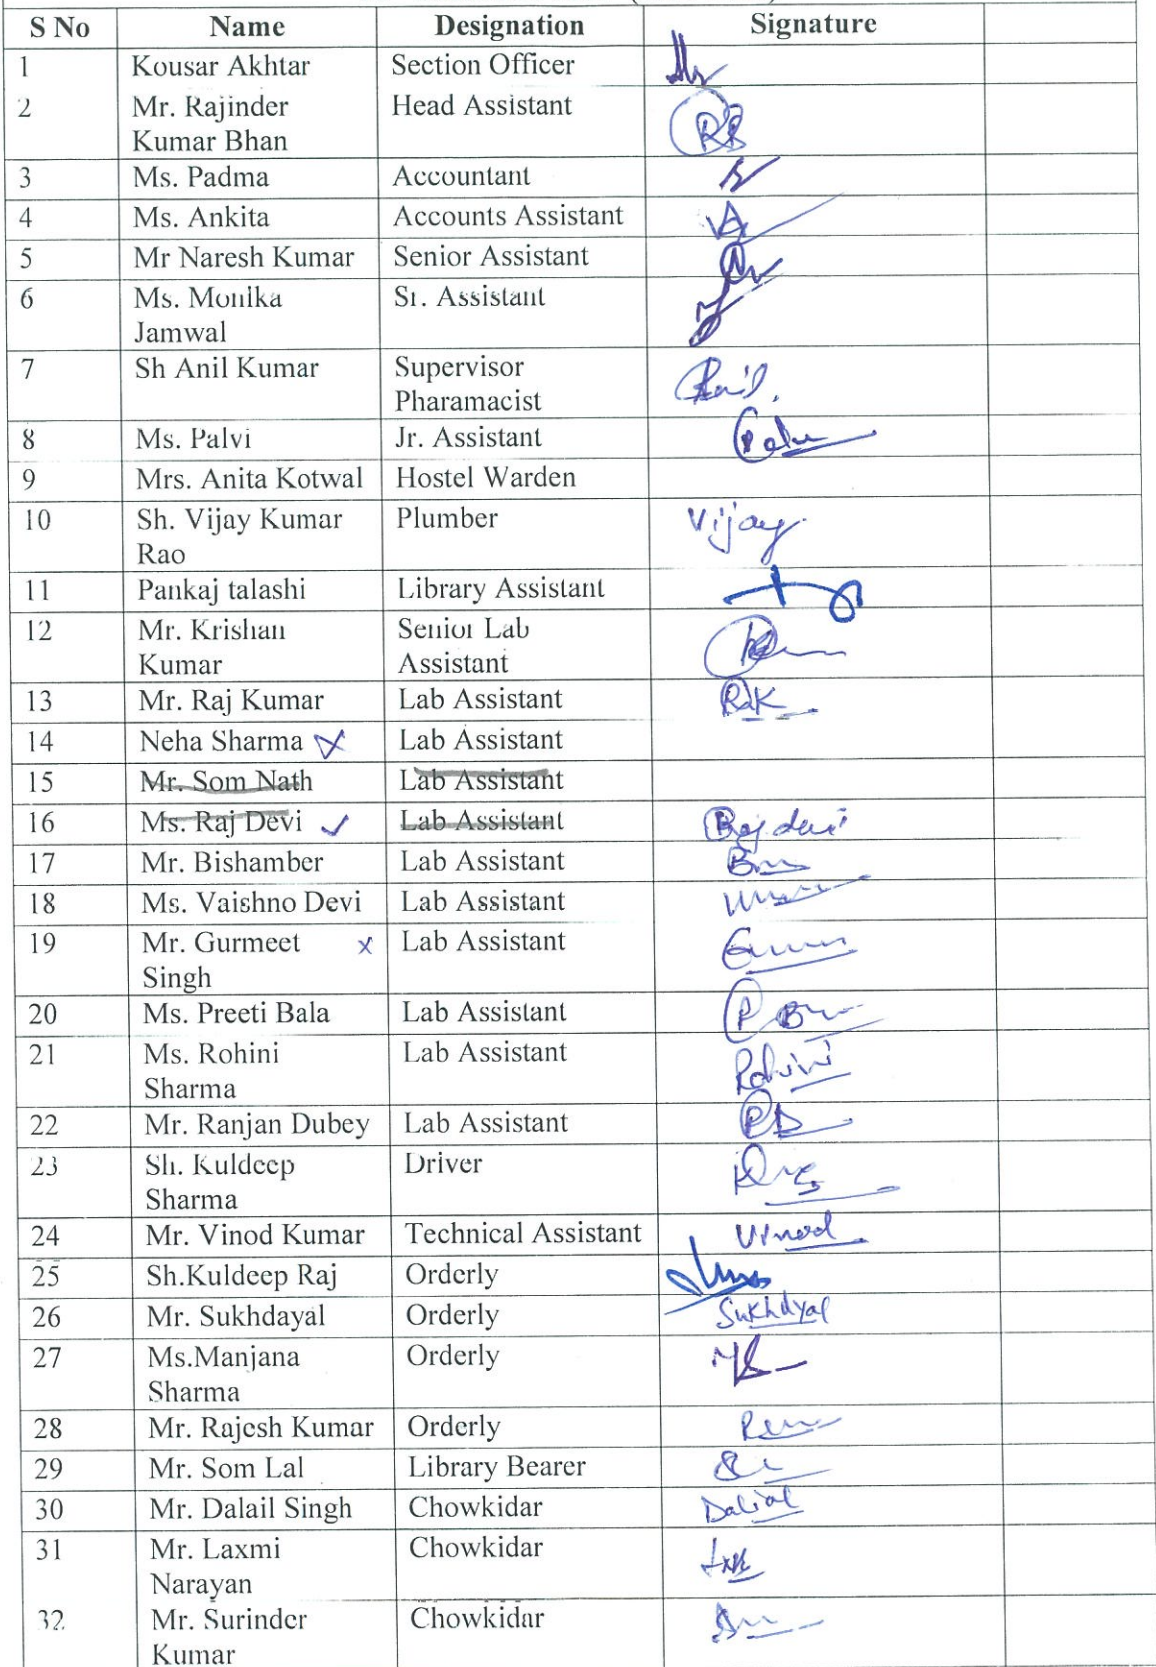 S No Name Designation Signature
1 Kousar Akhtar Section Officer
2 Mr. Rajinder Head Assistant RB
Kumar Bhan
3 Ms. Padma Accountant
4 Ms. Ankita Accounts Assistant A
5 Mr Naresh Kumar Senior Assistant
6 Ms. Monika Sr. Assistant
Jamwal
7 Sh Anil Kumar Supervisor
Pharamacist
8 Ms. Palvi Jr. Assistant
9 Mrs. Anita Kotwal Hostel Warden
10 Sh. Vijay Kumar Plumber Vijay
Rao
11 Pankaj talashi Library Assistant
12 Mr. Krishan Senior Lab
Kumar Assistant
13 Mr. Raj Kumar Lab Assistant RaK
14 Neha Sharma Lab Assistant
15 Mr. Som Nath Lab Assistant
16 Ms. Raj Devi Lab Assistant Raj devi
17 Mr. Bishamber Lab Assistant
18 Ms. Vaishno Devi Lab Assistant
19 Mr. Gurmeet x Lab Assistant
Singh
20 Ms. Preeti Bala Lab Assistant
21 Ms. Rohini Lab Assistant Rohini
Sharma
22 Mr. Ranjan Dubey Lab Assistant RD
23 Sh. Kuldeep Driver
Sharma
24 Mr. Vinod Kumar Technical Assistant Vinod
25 Sh.Kuldeep Raj Orderly
26 Mr. Sukhdayal Orderly Sukhdyal
27 Ms.Manjana Orderly
Sharma
28 Mr. Rajesh Kumar Orderly
29 Mr. Som Lal Library Bearer
30 Mr. Dalail Singh Chowkidar Dalial
31 Mr. Laxmi Chowkidar
Narayan
32 Mr. Surinder Chowkidar
Kumar